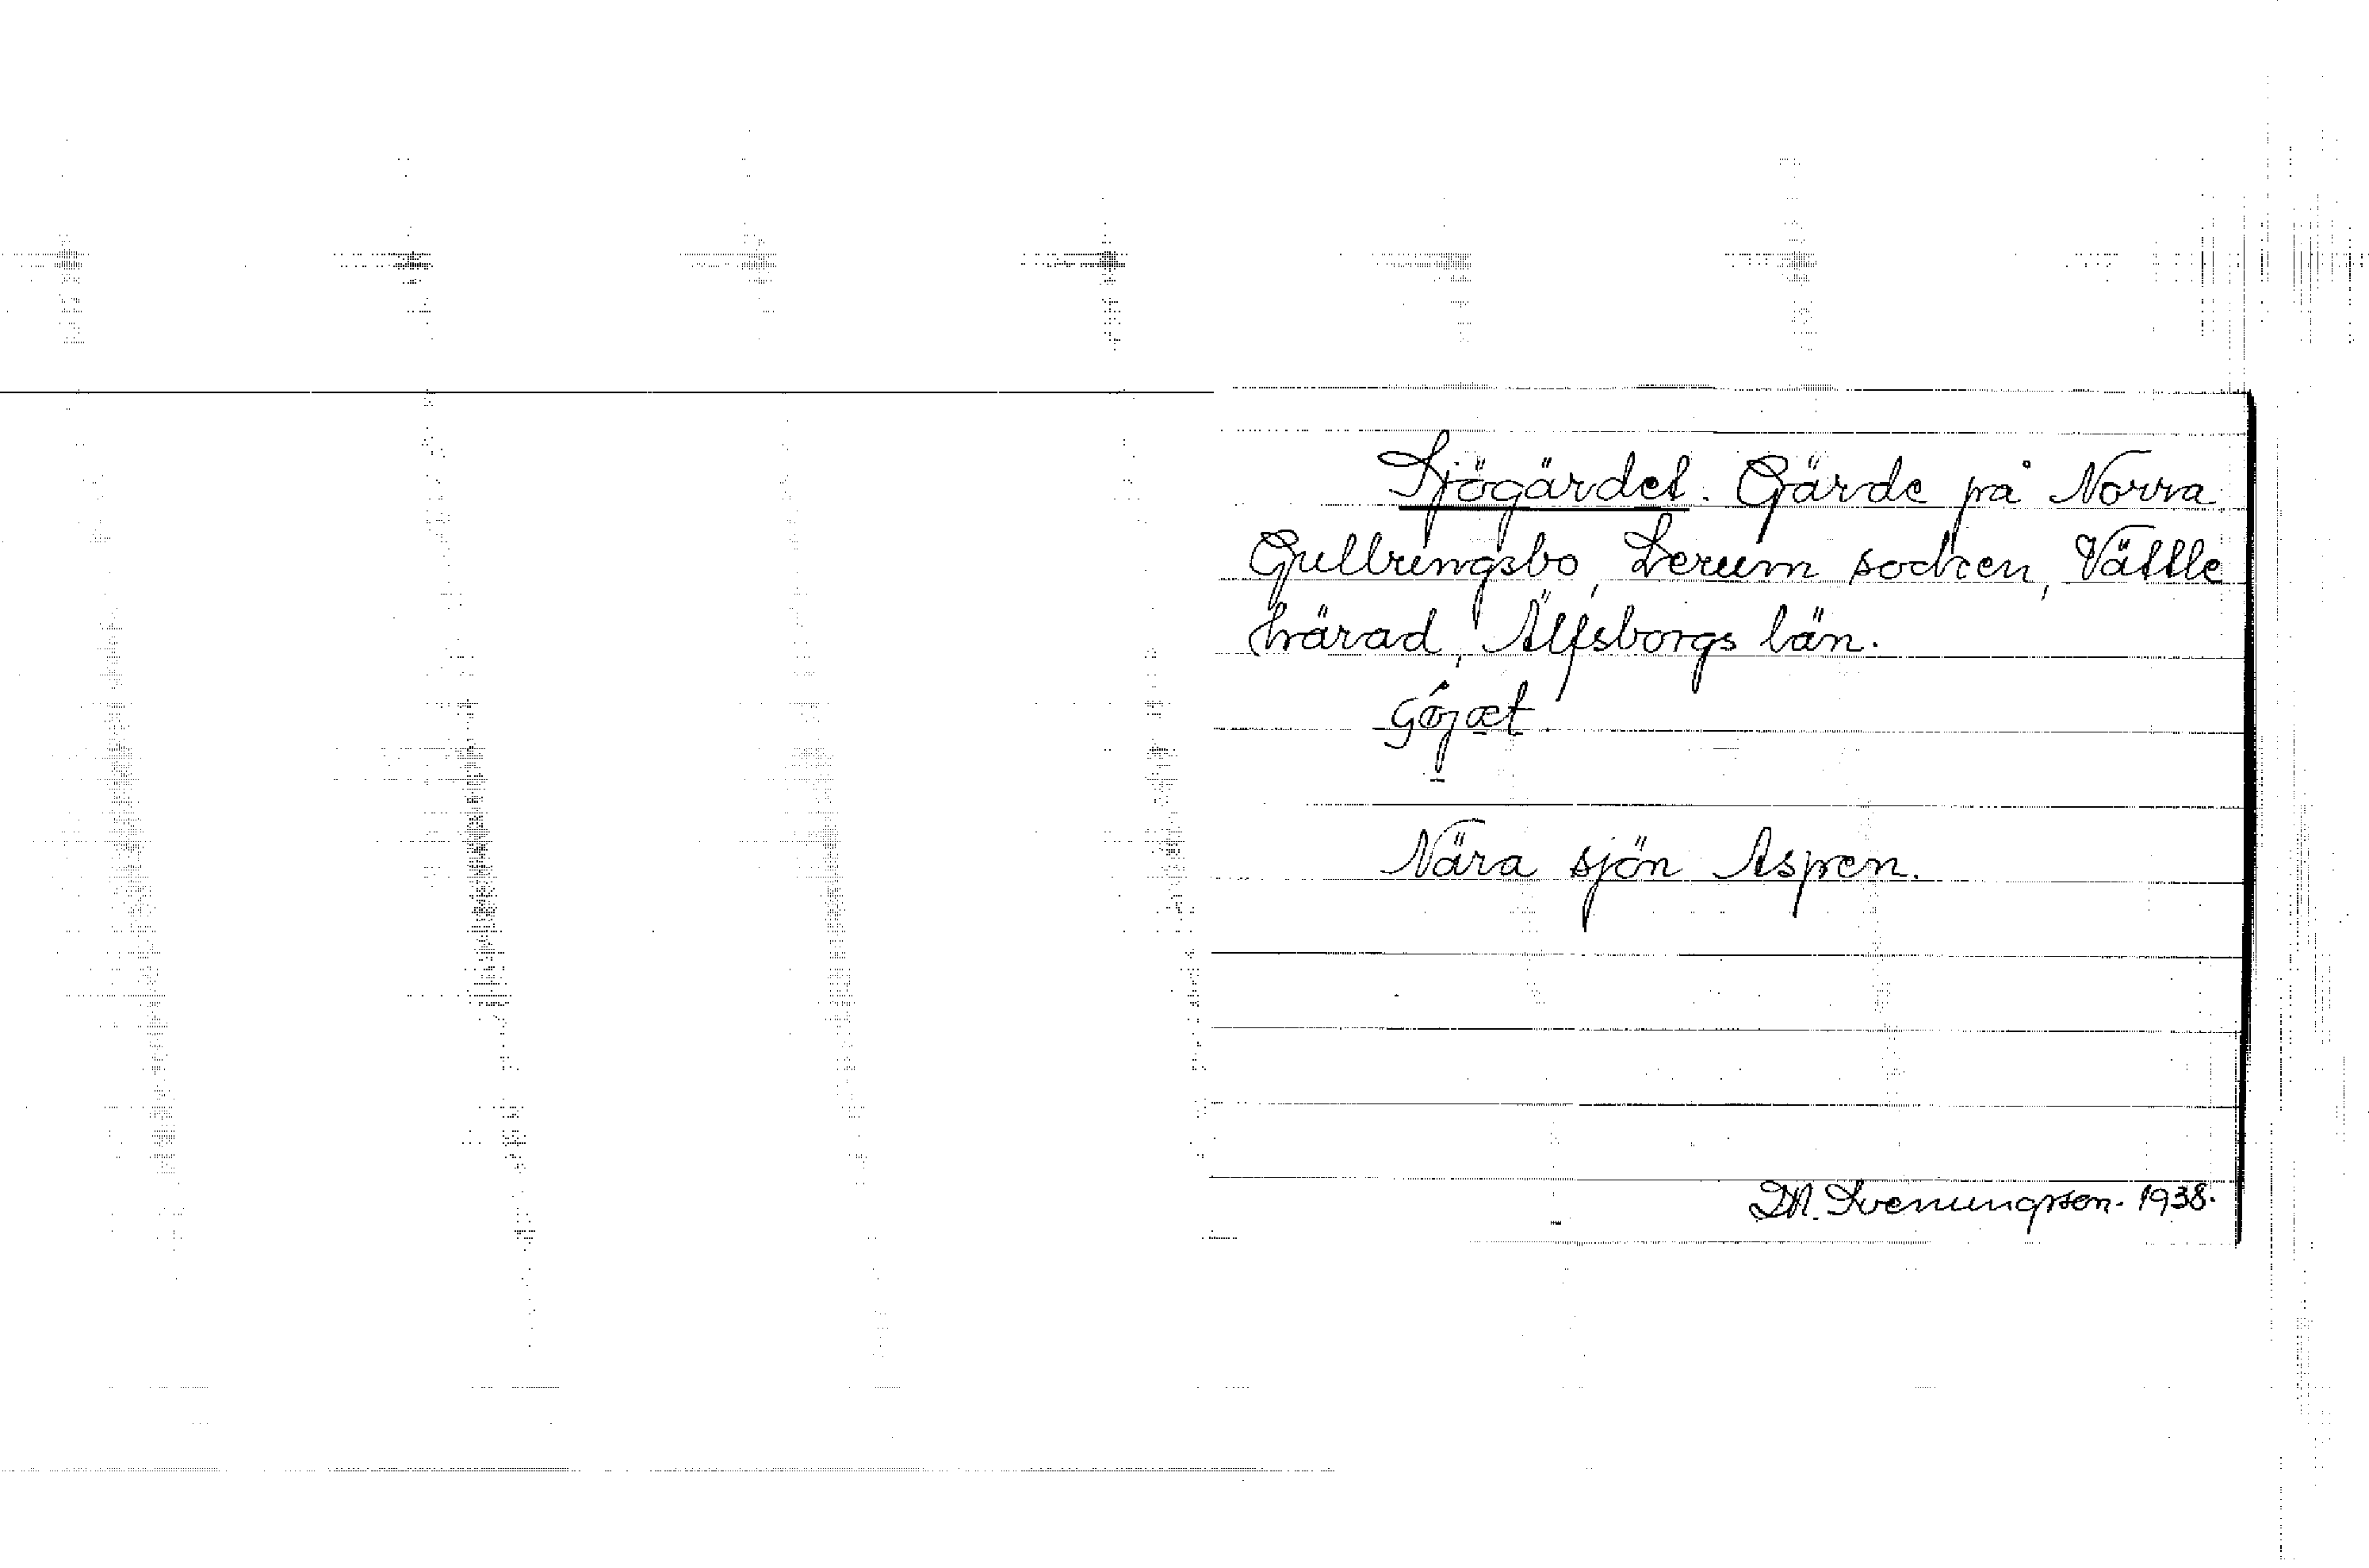 Sjögärdet. Gärde på Norra
Gullringsbo, Lerum socken, Vättle
härad, Älfsborgs län.
Nära sjön Aspen.
D.A. Svenungsson. 1938.